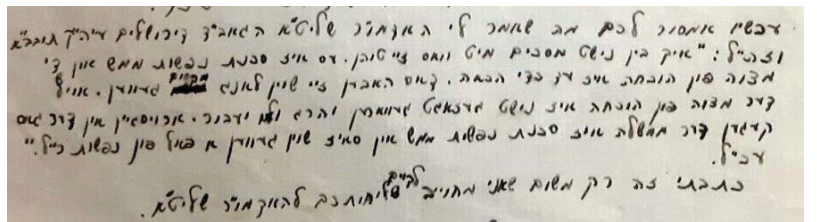 עכשיו אמסור לכם מה שאמר לי האדמו"ר שליט"א הגאב"ד דירושלים עיה"ק תובב"א
וזה"ל: "איך בין נישט מסכים מיט וואס זיי טוהן. עס איז סכנת נפשות ממש און די
מצוה פון הוכחה איז עד כדי הכאה. דאס האבן זיי שוין לאנג מקיים געווען. אויף
דער מצוה פון הוכחה איז נישט געזאגט געווארן יהרג ולא יעבור. ארויסגיין אין דר גאס
קעגען דר ממשלה איז סכנת נפשות ממש און ס'איז שוין געווען א פאל פון נפשות ר"ל."
עכ"ל.
כתבתי זה רק משום שאני מחויב לקיים שליחותכם להאדמו"ר שליט"א.